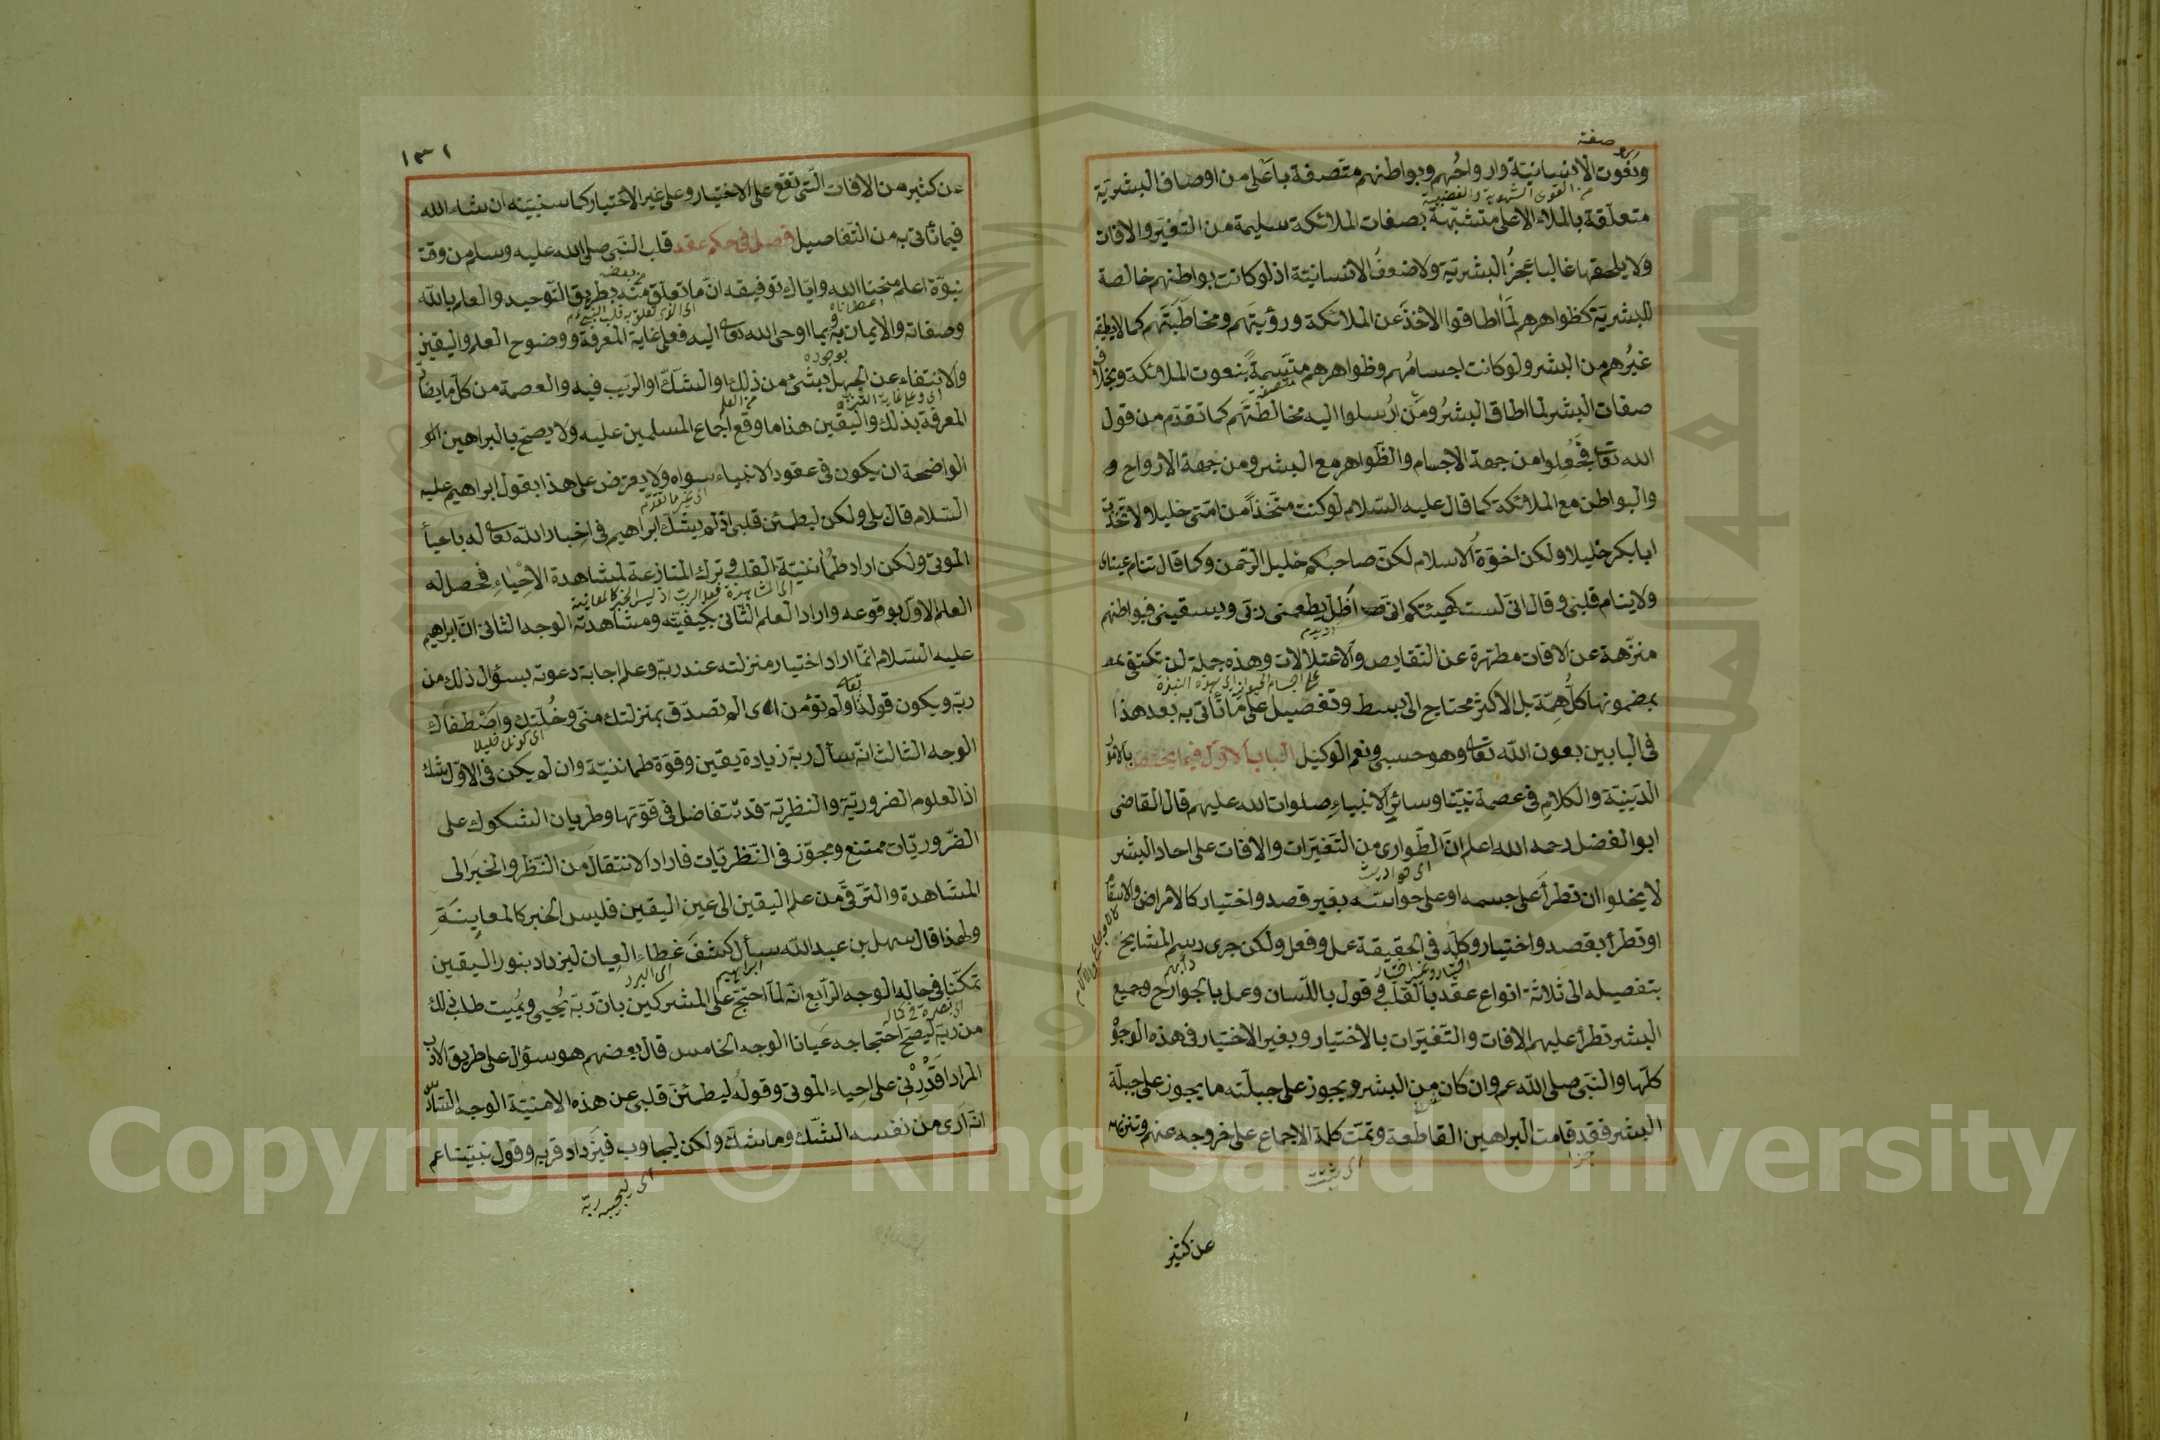 صفته
ونعوت الانسانية وارواحهم وبواطنهم متصفة باعلى من اوصاف البشرية
من القوى الشهوية والغضبية
متعلقة بالملاء الاعلى متشبهة بصفات الملائكة سليمة من التغير والافات
ولا يلحقها غالبا عجز البشرية ولا ضعف الانسانية اذ لو كانت بواطنهم خالصة
للبشرية كظواهرهم لما اطاقوا الاخذ عن الملائكة ورؤيتهم ومخاطبتهم كما لا يطيقه
غيرهم من البشر ولو كانت اجسامهم وظواهرهم متسمة بنعوت الملائكة وبخلاف
صفات البشر لما اطاق البشر ومن ارسلوا اليه مخالطتهم كما تقدم من قول
الله تعالى فجعلوا من جهة الاجسام والظواهر مع البشر ومن جهة الارواح و
والبواطن مع الملائكة كما قال عليه السلام لو كنت متخذا من امتى خليلا ولاتخذت
ابا بكر خليلا ولكن اخوة الاسلام لكن صاحبكم خليل الرحمن وكما قال تنام عيناى
ولا ينام قلبى وقال انى لست كهيئتكم انى اظل يطعمنى ربى ويسقينى فبواطنهم
منزهة عن الافات مطهرة عن النقايص والاعتلالات وهذه جملة لن تكتفى
بمضمونها كل همة بل الاكثر محتاج الى بسط وتفصيل على ما نأتى به بعد هذا
فى البابين بعون الله تعالى وهو حسبى ونعم الوكيل الباب الاول فيما يختص بالامور
الدينية والكلام فى عصمة نبينا وسائر الانبياء صلوات الله عليهم قال القاضى
ابو الفضل رحمه الله اعلم ان الطوارى من التغيرات والافات على احاد البشر
اى حوادث
لا يخلوا ان تطرأ على جسمه او على حواسه بغير قصد واختيار كالامراض والاسقام
او تطرأ بقصد واختيار وكله فى الحقيقة عمل وفعل ولكن جرى رسم المشايخ
بتفصيله الى ثلاثة انواع عقد بالقلب وقول باللسان وعمل بالجوارح وجميع
البشر تطرأ عليهم الافات والتغيرات بالاختيار وبغير الاختيار فى هذه الوجوه
كلها والنبى صلى الله عم وان كان من البشر ويجوز على جبلته ما يجوز على جبلة
البشر فقد قامت البراهين القاطعة وتمت كلمة الاجماع على خروجه عنهم وتنزيهه
عن كثير
١٣٢
عن كثير من الافات التى تقع على الاختيار وعلى غير الاختيار كما سنبينه ان شاء الله
فيما نأتى به من التفاصيل فصل فى حكم عقد قلب النبى صلى الله عليه وسلم من وقت
نبوة اعلم منحنا الله واياك توفيقه ان ما تعلق منه بطريق التوحيد والعلم بالله
وصفاته والايمان به وبما اوحى الله تعالى اليه فعلى غاية المعرفة ووضوح العلم واليقين
والانتفاء عن الجهل بشئ من ذلك او الشك او الريب فيه والعصمة من كل ما يضاد
المعرفة بذلك واليقين هذا ما وقع اجماع المسلمين عليه ولا يصح بالبراهين
الواضحة ان يكون فى عقود الانبياء سواه ولا يعترض على هذا بقول ابراهيم عليه
السلام قال بلى ولكن ليطمئن قلبى اذ لم يشك ابراهيم فى اخبار الله تعالى له باحياء
الموتى ولكن اراد طمأنينة القلب وترك المنازعة لمشاهدة الاحياء فحصل له
العلم الاول بوقوعه واراد العلم الثانى بكيفيته ومشاهدته الوجه الثانى ان ابراهيم
عليه السلام انما اراد اختيار منزلته عند ربه وعلم اجابة دعوته بسؤال ذلك من
ربه ويكون قوله تعالى اولم تؤمن اى الم تصدق بمنزلتك منى وخلتك واصطفاك
اى كونك خليلا
الوجه الثالث انه سأل ربه زيادة يقين وقوة طمانينة وان لم يكن فى الاول شك
اذ العلوم الضرورية والنظرية قد تتفاضل فى قوتها وطريان الشكوك على
الضروريات ممتنع ومجوز فى النظريات فاراد الانتقال من النظر والخبر الى
المشاهدة والترقى من علم اليقين الى عين اليقين فليس الخبر كالمعاينة
ولهذا قال سهل بن عبد الله سأل كشف غطاء العيان ليزداد بنور اليقين
تمكنا فى حاله الوجه الرابع انه لما احتج على المشركين بان ربه يحيى ويميت طلب ذلك
من ربه ليصح احتجاجه عيانا الوجه الخامس قال بعضهم هو سؤال على طريق الادب
المراد اقدرنى على احياء الموتى وقوله ليطمئن قلبى عن هذه الامنية الوجه السادس
انه ارى من نفسه الشك وما شك ولكن ليجاوب فيزداد قربه وقول نبينا عم
اى ليجيبه ربه
Copyright © King Saud University